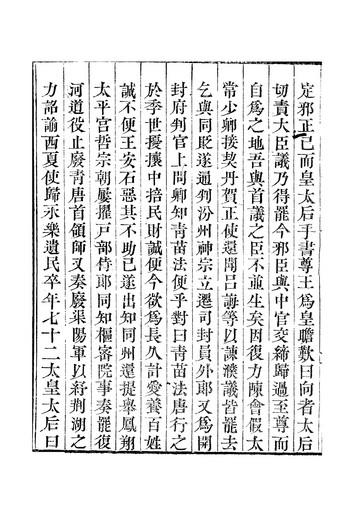 定邪正已而皇太后手書尊王爲皇瞻歎曰向者太后
切責大臣議乃得罷今邪臣與中官交締歸過至尊而
自爲之地吾與首議之臣不並生矣因復力陳會假太
常少卿接契丹賀正使還聞呂誨等以諫濮議皆罷去
乞與同貶遂通判汾州神宗立遷司封員外郎又爲開
封府判官上問卿知青苗法便乎對曰青苗法唐行之
於季世擾攘中掊民財誠便今欲爲長久計愛養百姓
誠不便王安石惡其不助己遂出知同州還提舉鳳翔
太平宮哲宗朝屢擢戸部侍郎同知樞宻院事奏罷復
河道役止廢青唐首領師又奏廢渠陽軍以紓荆湖之
力詔諭西夏使歸永樂遺民卒年七十二太皇太后曰